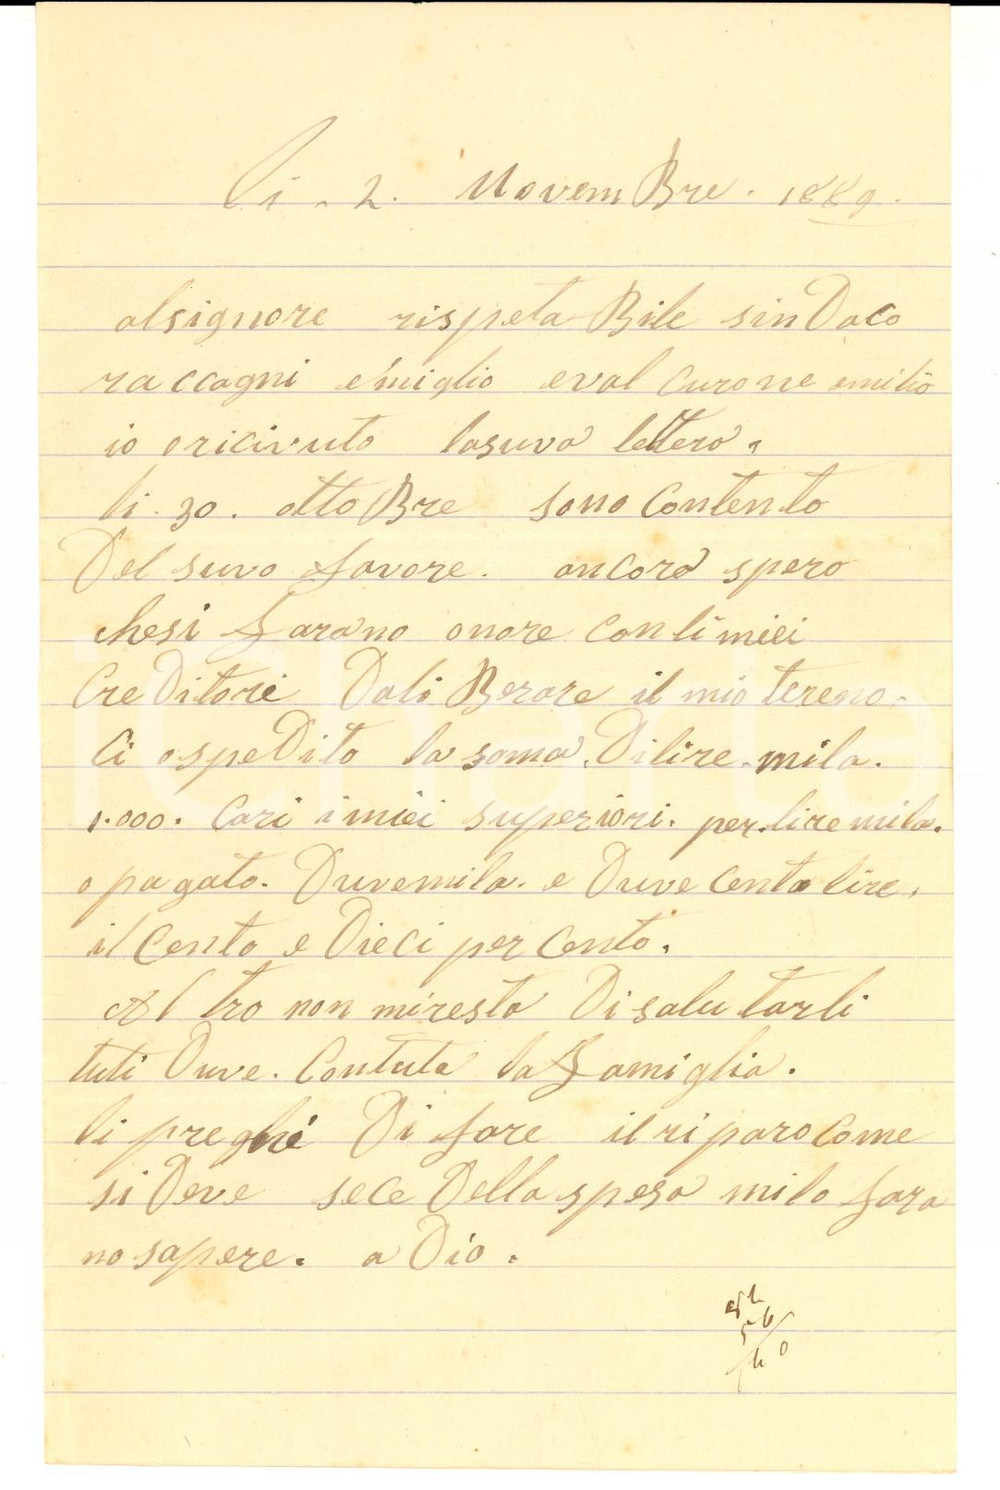 li. 2. NovemBre. 1889.
alsignore rispetaBile sinDaco
raccagni emiglio eval Curone emilio
io oricivuto lasuva lettera.
li. 30. ottoBre sono Contento
Del suvo favore. ancora spero
chesi farano onore con li miei
CreDitori DaliBerare il mio tereno.
Ci ospeDito la soma. Dilire. mila.
1.000. Cari i miei superiori. per. lire mila.
o pagato. Duvemila. e Duve Centa lire.
il Cento e Dieci per Cento.
Al tro non miresta Di salu tarli
tuti Duve. Contuta la famiglia.
li preghi Di fare il riparo Come
si Deve sece Della spesa milo fara
no sapere. a Dio.